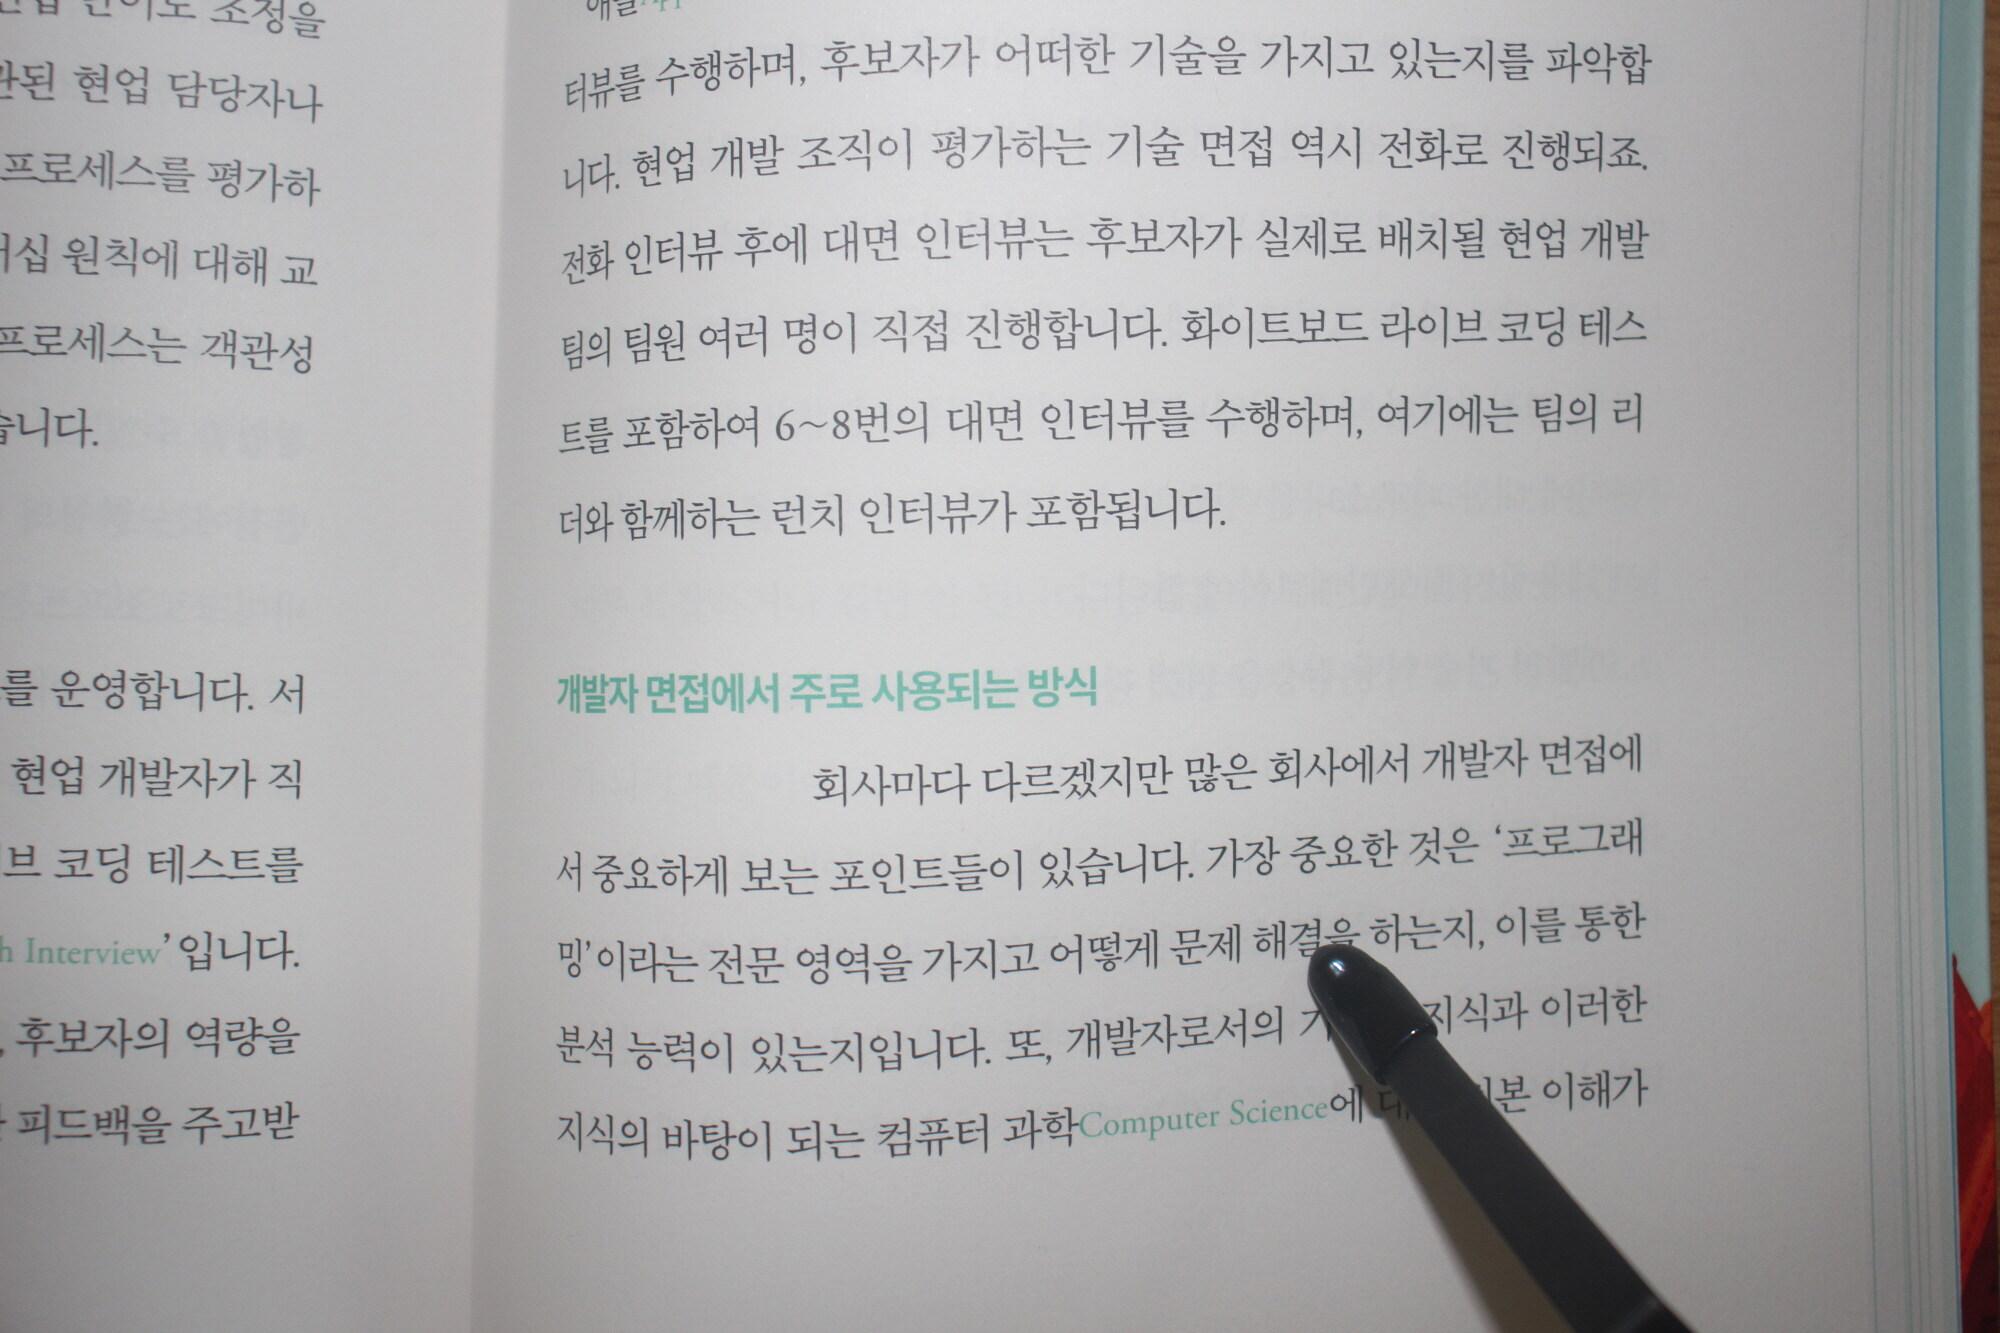 조정을
현업 담당자나
프로세스를 평가하
원칙에 대해 교
프로세스는 객관성
습니다.
를 운영합니다. 서
현업 개발자가 직
브 코딩 테스트를
Interview’입니다.
, 후보자의 역량을
피드백을 주고받
터뷰를 수행하며, 후보자가 어떠한 기술을 가지고 있는지를 파악합
니다. 현업 개발 조직이 평가하는 기술 면접 역시 전화로 진행되죠.
전화 인터뷰 후에 대면 인터뷰는 후보자가 실제로 배치될 현업 개발
팀의 팀원 여러 명이 직접 진행합니다. 화이트보드 라이브 코딩 테스
트를 포함하여 6~8번의 대면 인터뷰를 수행하며, 여기에는 팀의 리
더와 함께하는 런치 인터뷰가 포함됩니다.
개발자 면접에서 주로 사용되는 방식
회사마다 다르겠지만 많은 회사에서 개발자 면접에
서 중요하게 보는 포인트들이 있습니다. 가장 중요한 것은 ‘프로그래
밍’이라는 전문 영역을 가지고 어떻게 문제 해결을 하는지, 이를 통한
분석 능력이 있는지입니다. 또, 개발자로서의 지식과 이러한
지식의 바탕이 되는 컴퓨터 과학Computer Science에 이해가